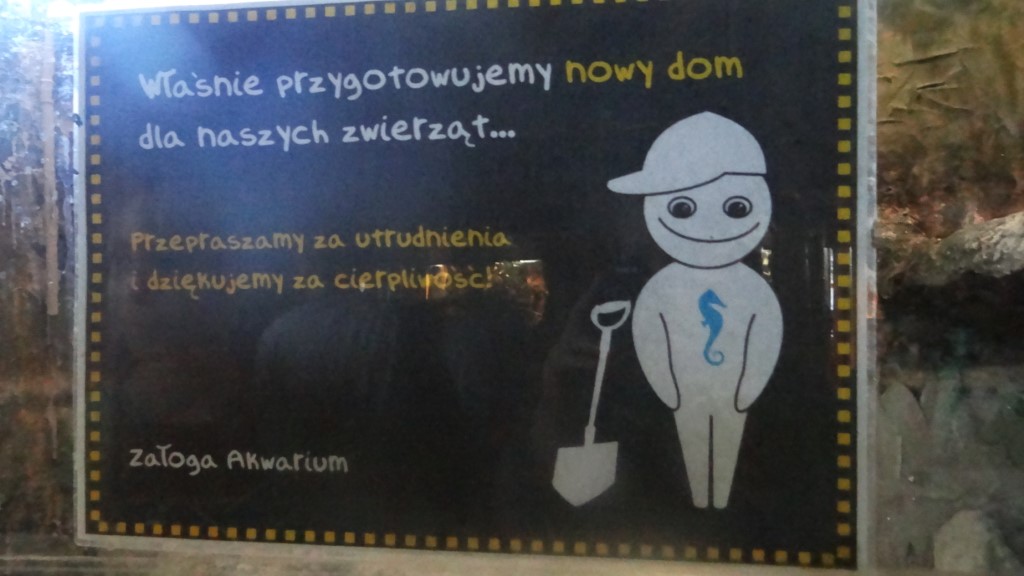 Właśnie przygotowujemy nowy dom
dla naszych zwierząt...
Przepraszamy za utrudnienia
i dziękujemy za cierpliwość!
załoga Akwarium